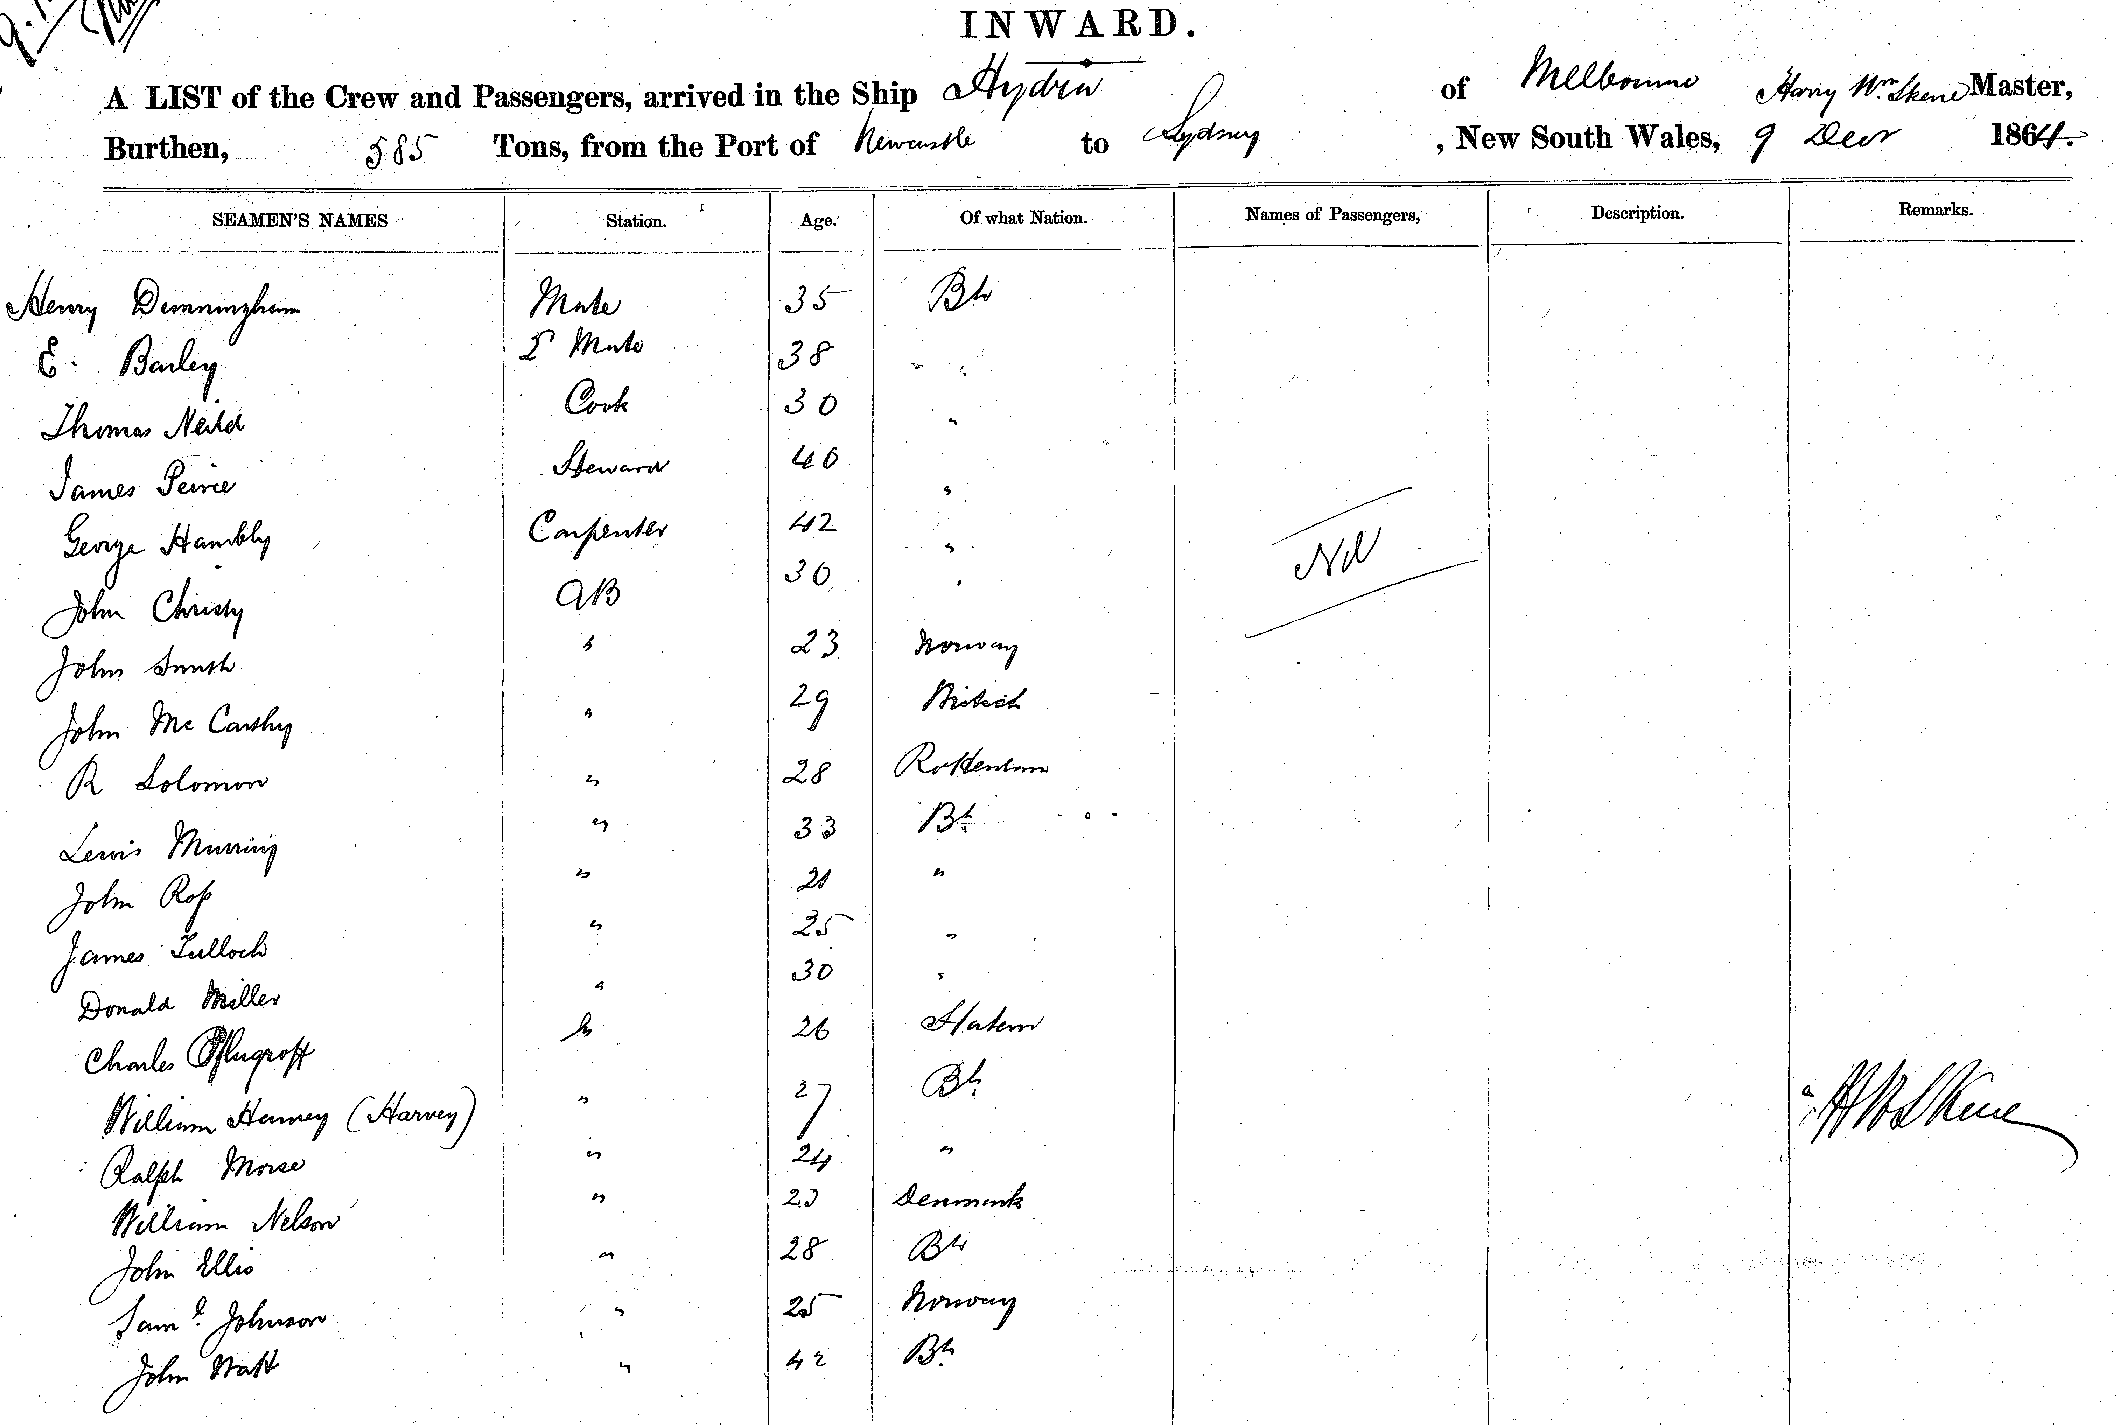 INWARD.
A LIST of the Crew and Passengers, arrived in the Ship Hydra of Melbourne Harry Wm Skene Master,
Burthen, 585 Tons, from the Port of Newcastle to Sydney, New South Wales, 9 Decr 1864.
SEAMEN'S NAMES Station. Age. Of what Nation. Names of Passengers, Description. Remarks.
Henry Mate 35 Bh
E. Barley 2 Mate 38 " "
Thomas Neild Cook 30 "
James Peirie Steward 40 "
George Hambly Carpenter 42 "
John Christy AB 30 "
Nil
John Smith " 23 Norway
John Mc Carthy " 29 British
R Solomon " 28
Lewis Murring " 33 Bh
John Ross " 21 "
James Tulloch " 25 "
Donald Miller " 30 "
Charles " 26
William Harvey (Harvey) " 27 Bh
HWSkene
Ralph Morse " 24 "
William Nelson " 23 Denmark
John Ellis " 28 Bh
Saml Johnson " 25 Norway
John Watt " 42 Bh